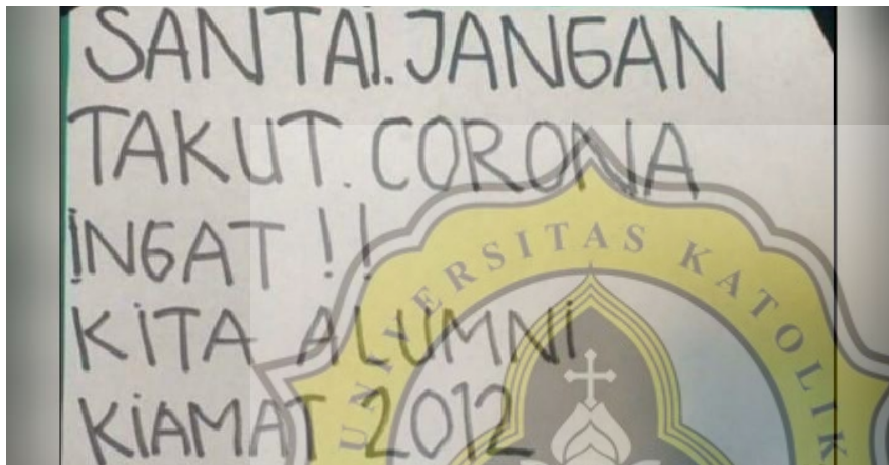 SANTAI. JANGAN
TAKUT. CORONA
INGAT !!
KITA ALUMNI
KIAMAT 2012
UNIVERSITAS KATOLIK